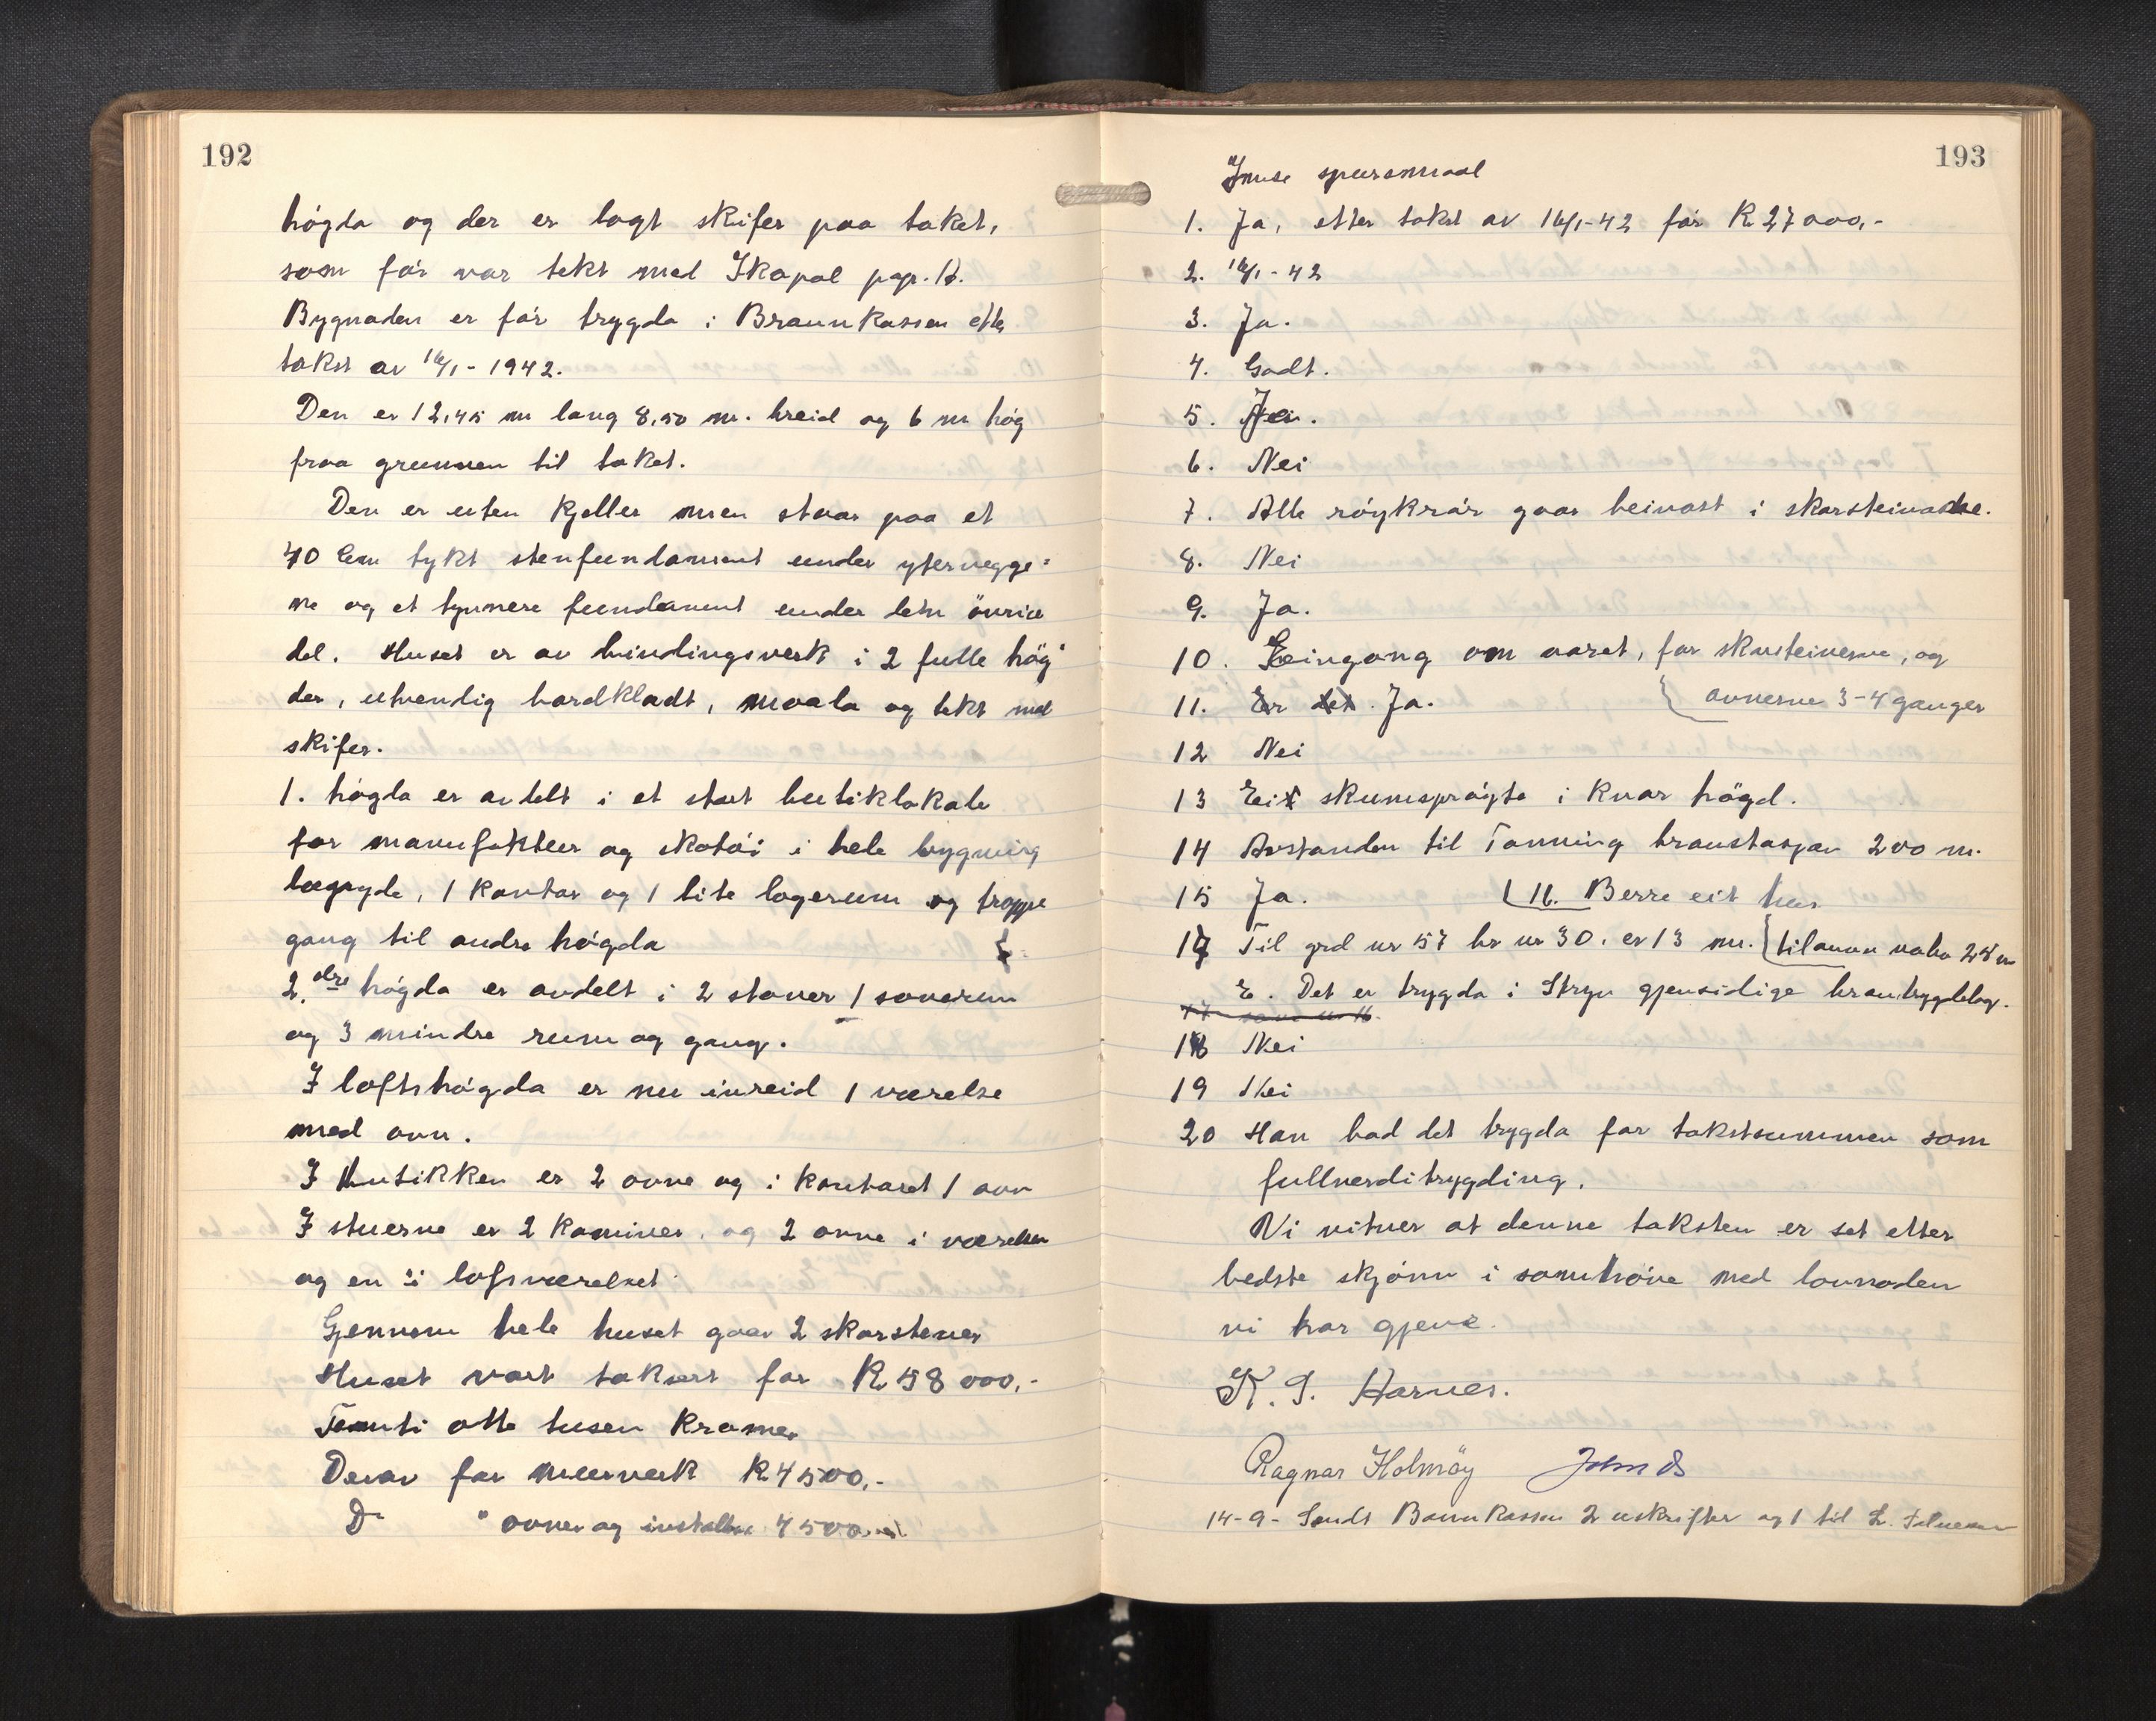 192
högda og der er lagt skifer paa taket,
som för var tekt med Ikopal pap.
Bygnaden er før trygda i Brannkassen etter
takst av 16/1 - 1942.
Den er 12,45 m lang 8,50 m. breid og 6 m høg
fraa grunnen til taket.
Den er uten kjeller men staar paa et
40 Cm tykt stenfundament under ytervegge-
ne og et tynnere fundament under den övrie
del. Huset er av bindingsverk i 2 fulle høg-
der, utvendig bordkladt, maala og tekt med
skifer.
1. høgda er avdelt i et stort butiklokale
for manufaktur og skotöi i hele bygning
lægngde, 1 kontor og 1 lite lagerum og trappe
gang til andre högda
2.dre högda er avdelt i 2 stover 1 soverum
og 3 mindre rum og gang.
I loftshögda er nu inreid 1 værelse
med ovn.
I butikken er 2 ovne og i kontoret 1 ovn
I stuerne er 2 kaminer, og 2 ovne i værelser
og en i loftsværelset
Gjennem hele huset gaar 2 skorstener
Huset vart taksert for K 58 000,-
Femti otte tusen kroner
Derav for murverk K 4500,-
Do " ovner og install. 4500
193
Ymse spursmaal
1. Ja, etter takst av 16/1-42 för K 27000,-
2. 16/1 - 42
3. Ja.
4. Godt.
5. Nei.
6. Nei
7. Alle röykrör gaar beinast i skorsteinane.
8. Nei
9. Ja.
10. Eingong om aaret, for skorsteinerne, og
ovnerne 3-4 ganger
11. Er det. Ja.
12 Nei
13 Eit skumspröyte i kvar högd.
14 Avstanden til Tonning branstasjon 200 m.
15 Ja. 16. Berre eit hus
17 Til grd nr 57 br nr 30. er 13 m. til annan nabo 25 m
E. Det er trygda i Stryn gjensidige brantrygdelag.
18 Nei
19 Nei
20 Han bad det trygda for takstsummen som
fullverditrygding.
Vi vitner at denne taksten er set etter
bedste skjönn i samhöve med lovnaden
vi har gjeve.
K. J. Harnes.
Ragnar Holmöy
14-9- Sendt Brannkassen 2 utskrifter og 1 til L.